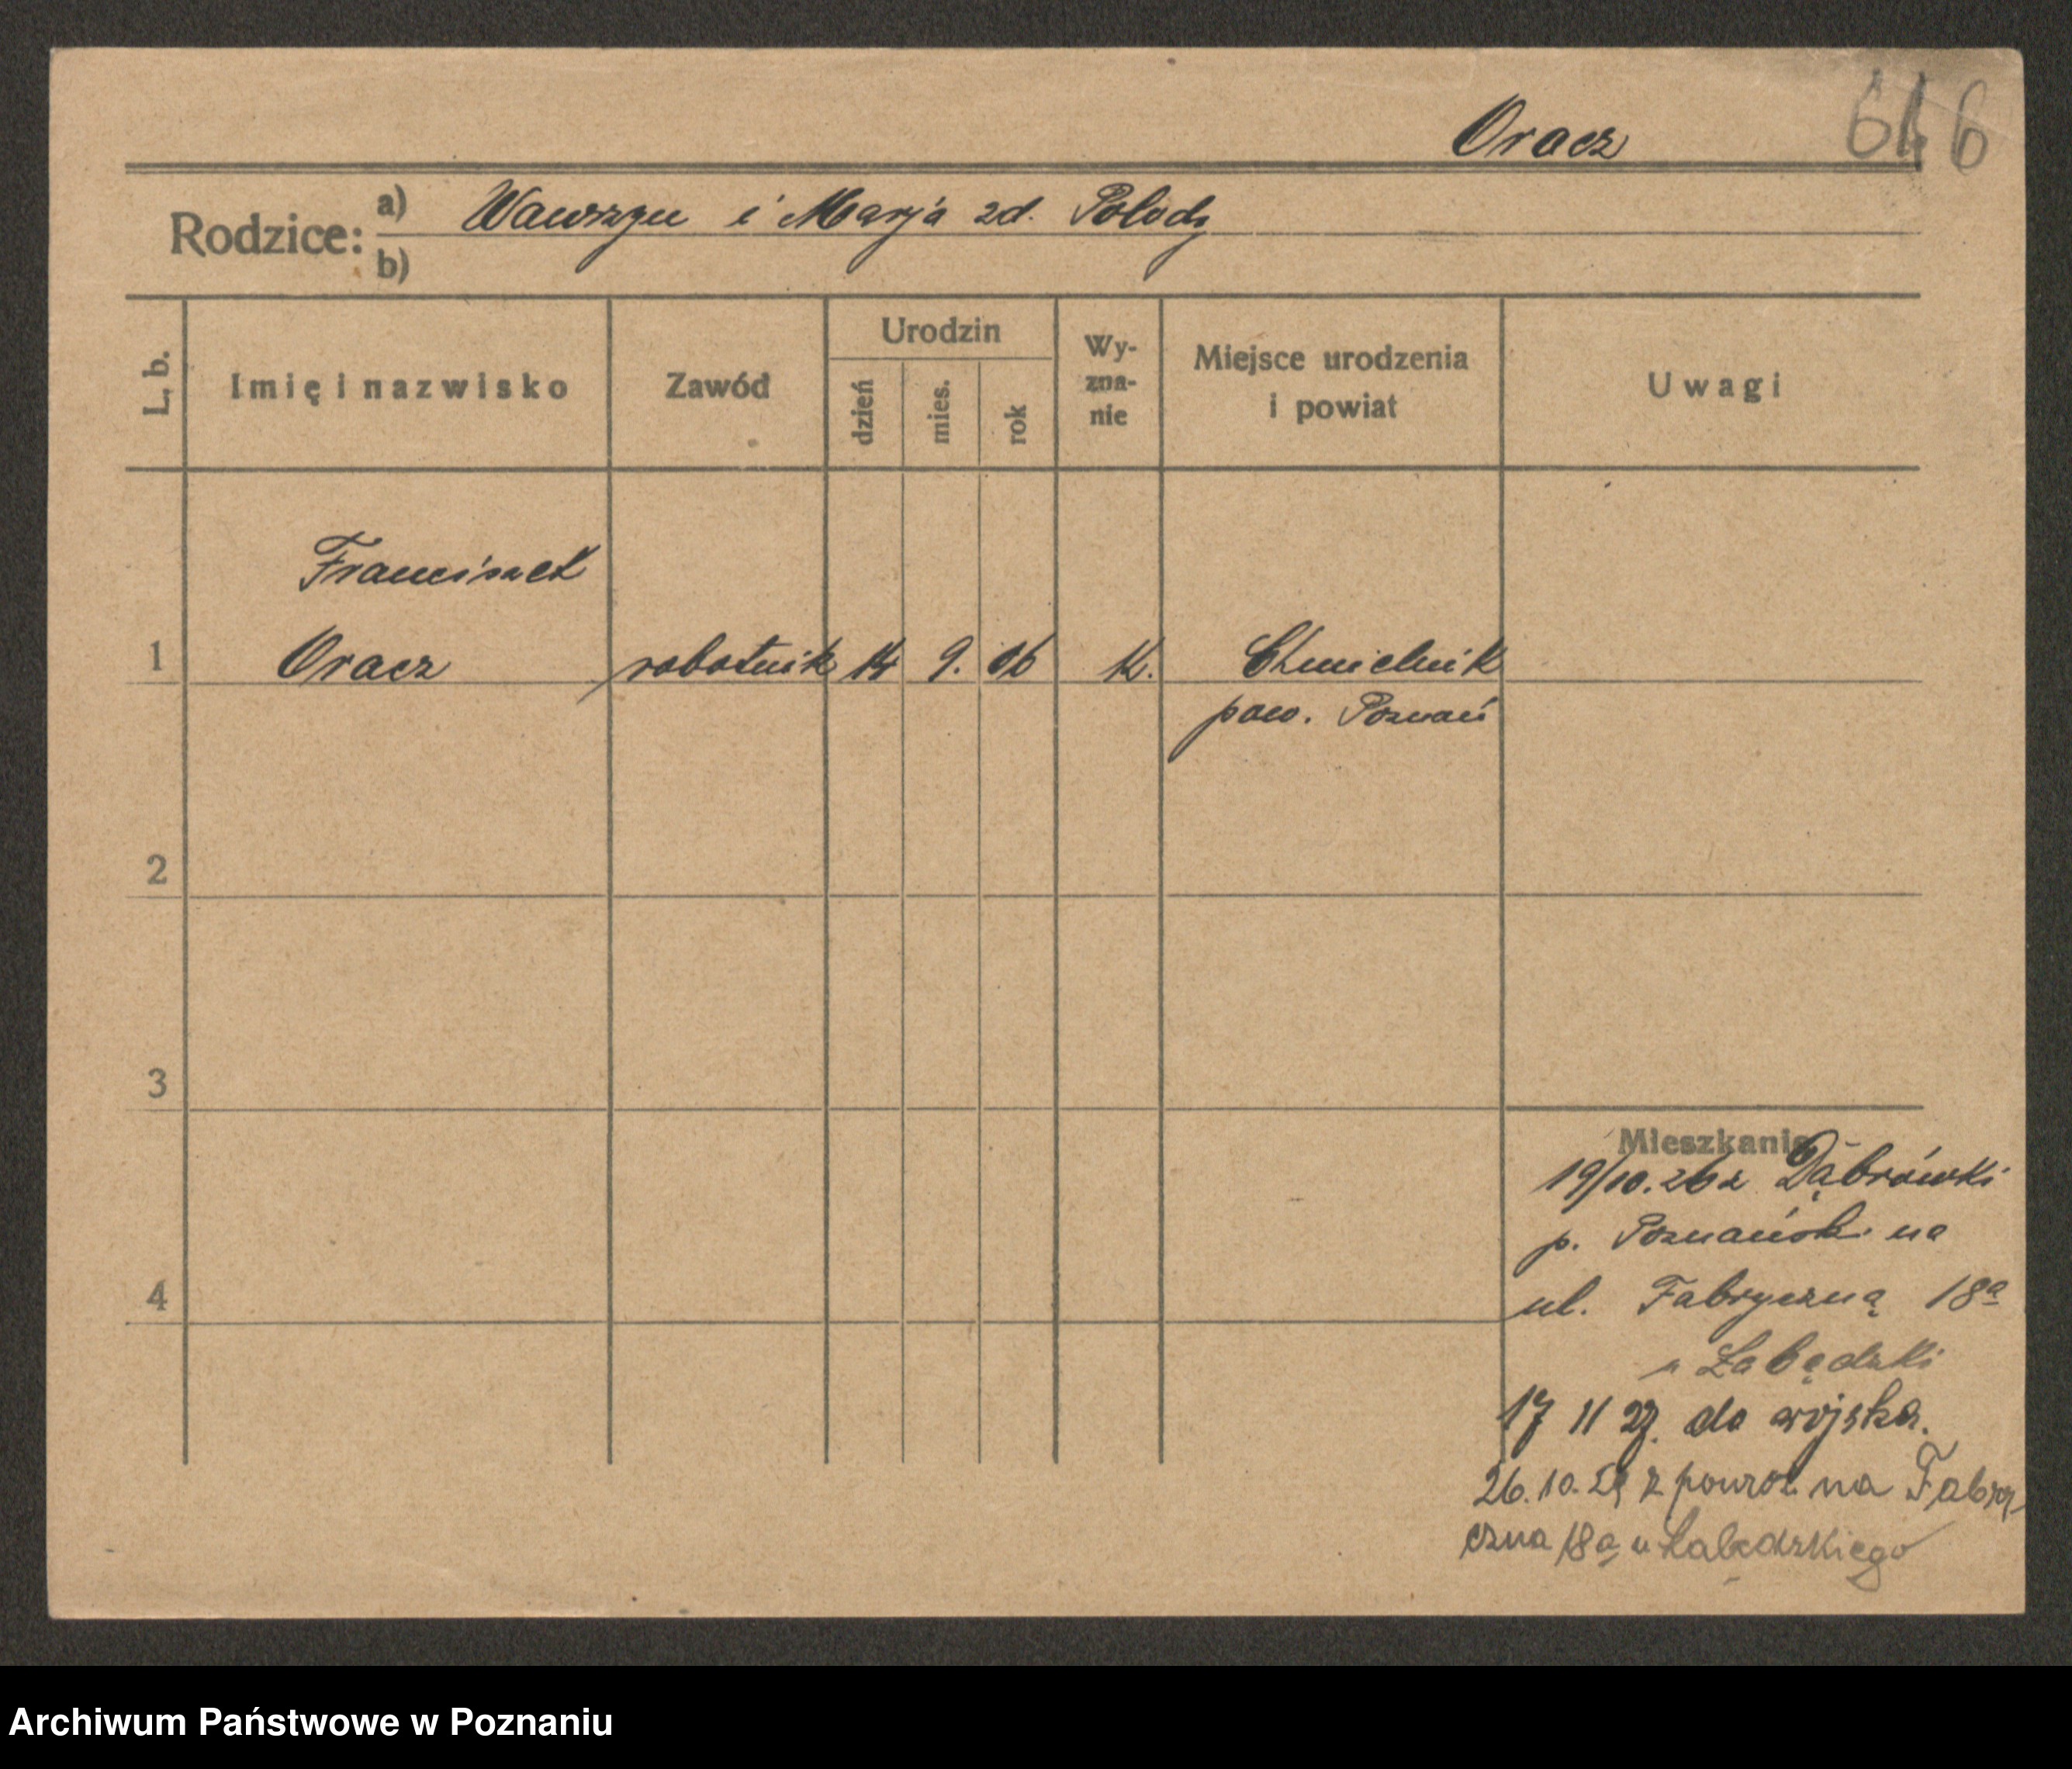 Oracz
646
Rodzice: a) Wawrzyn i Marja zd. Polody
b)
L. b. Imię i nazwisko Zawód Urodzin dzień mies. rok Wy-zna-nie Miejsce urodzenia i powiat Uwagi
Franciszek
1 Oracz robotnik 14 9. 06 K. Chmielnik
pow. Poznań
2
3
Mieszkanie
19/10.26 z Dąbrówki
p. Poznański na
4 ul. Fabryczną 18a
u Łabędzki
17 11 27. do wojska.
26.10.29 z powrot na Fabry
czna 18a u Łabędzkiego
Archiwum Państwowe w Poznaniu